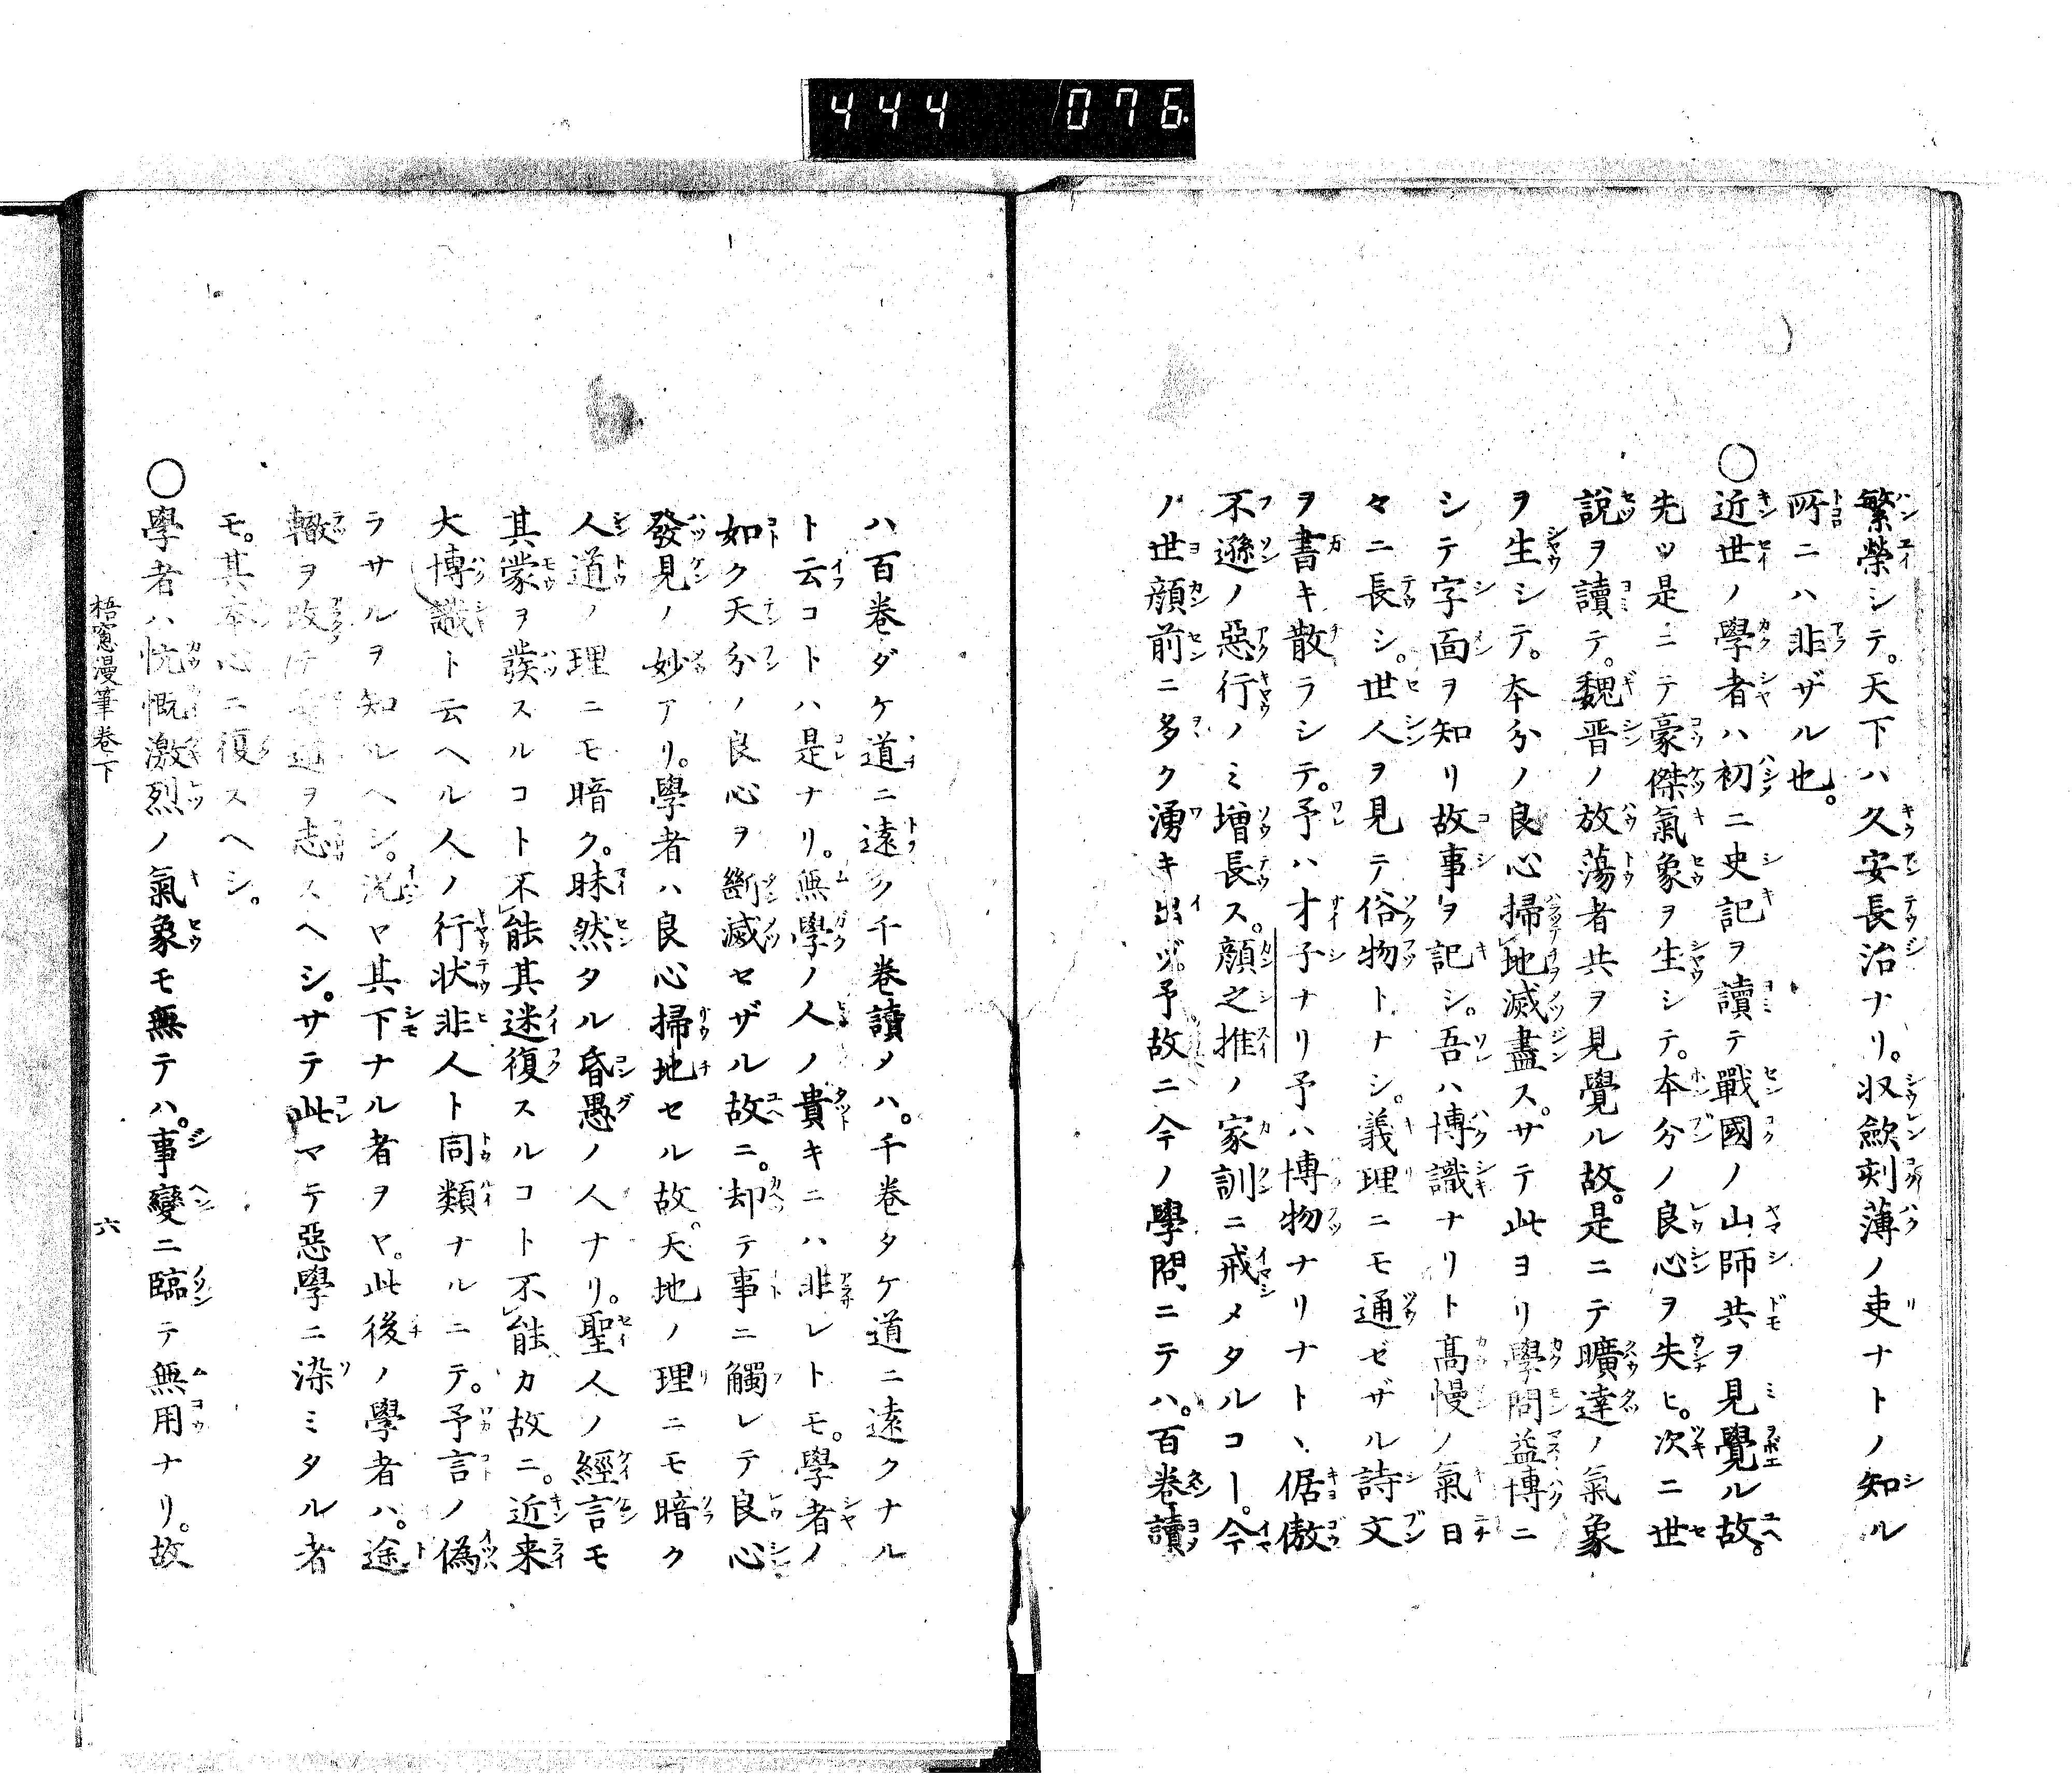 444 076
繁榮シテ。天下ハ久安長治ナリ。収斂刻薄ノ吏ナトノ知ル
所ニハ非ザル也。
○近世ノ學者ハ初ニ史記ヲ讀テ戰國ノ山師共ヲ見覺ル故。
先ツ是ニテ豪傑氣象ヲ生シテ。本分ノ良心ヲ失ヒ。次ニ世
說ヲ讀テ。魏晋ノ放蕩者共ヲ見覺ル故。是ニテ曠達ノ氣象
ヲ生シテ。本分ノ良心掃地滅盡ス。サテ此ヨリ學問益博ニ
シテ字面ヲ知リ故事ヲ記シ。吾ハ博識ナリト髙慢ノ氣日
々ニ長シ。世人ヲ見テ俗物トナシ。義理ニモ通ゼザル詩文
ヲ書キ散ラシテ。予ハ才子ナリ予ハ博物ナリナト、倨傲
不遜ノ惡行ノミ增長ス。顔之推ノ家訓ニ戒メタルコー。今
ノ世顔前ニ多ク湧キ出ヅ。予故ニ今ノ學問ニテハ。百卷讀
ハ百卷ダケ道ニ遠ク千卷讀ノハ。千卷タケ道ニ遠クナル
ト云コトハ是ナリ。無學ノ人ノ貴キニハ非レトモ。學者ノ
如ク天分ノ良心ヲ斷滅セザル故ニ。却テ事ニ觸レテ良心
發見ノ妙アリ。學者ハ良心掃地セル故。天地ノ理ニモ暗ク
人道ノ理ニモ暗ク。昧然タル昏愚ノ人ナリ。聖人ノ經言モ
其蒙ヲ發スルコト不能其迷復スルコト不能カ故ニ。近来
大博識ト云ヘル人ノ行状非人ト同類ナルニテ。予言ノ偽
ラサルヲ知ルヘシ。况ヤ其下ナル者ヲヤ。此後ノ學者ハ。途
轍ヲ改テ 道ヲ志スヘシ。サテ此マテ惡學ニ染ミタル者
モ。其本心ニ復スヘシ。
○學者ハ忼慨激烈ノ氣象モ無テハ。事變ニ臨テ無用ナリ。故
梧窻漫筆卷下 六